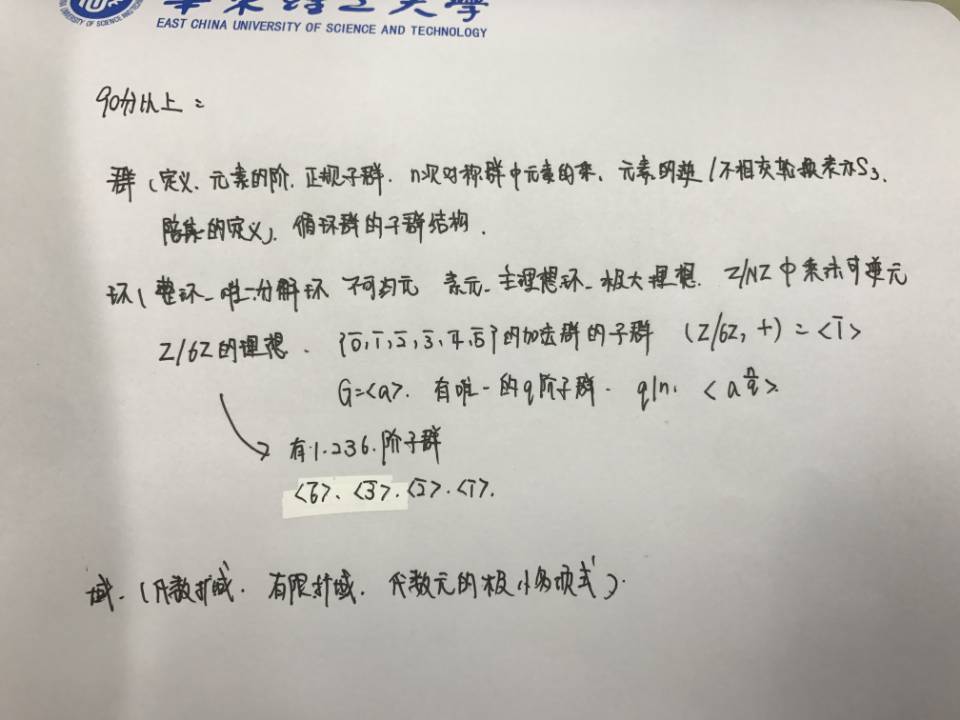 华东理工大学
EAST CHINA UNIVERSITY OF SCIENCE AND TECHNOLOGY
90分以上:
群(定义、元素的阶、正规子群、n次对称群中元素的乘、元素的逆/不相交轮换表示S3、
陪集的定义)、循环群的子群结构.
环(整环、唯一分解环 不可约元 素元、主理想环、极大理想. Z/NZ中乘法可逆元
Z/6Z的理想、{0̄,1̄,2̄,3̄,4̄,5̄}的加法群的子群 (Z/6Z, +) = <1̄>
G=<a>. 有唯一的q阶子群. q|n. <a^(n/q)>
→ 有1.2.3.6.阶子群
<6̄>.<3̄>.<2̄>.<1̄>.
域.(代数扩域. 有限扩域. 代数元的极小多项式).